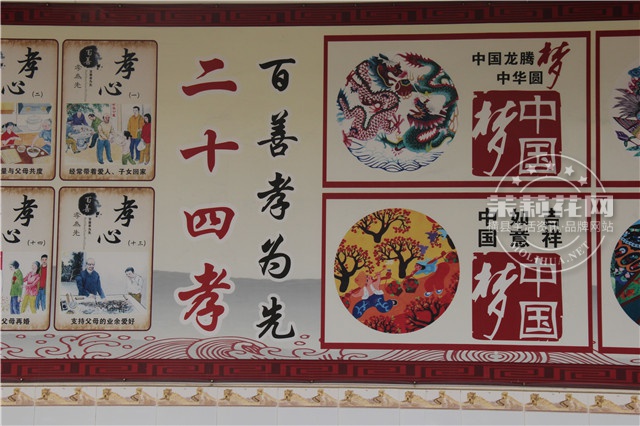 孝心
(二)
量与父母共度
孝心
(一)
孝为先
经常带着爱人、子女回家
孝心
(十四)
父母再婚
孝心
(十三)
孝为先
支持父母的业余爱好
二十四孝
百善孝为先
中国龙腾
中华圆
梦
中国
梦
中国
如意
吉祥
中国
梦
茉莉花网